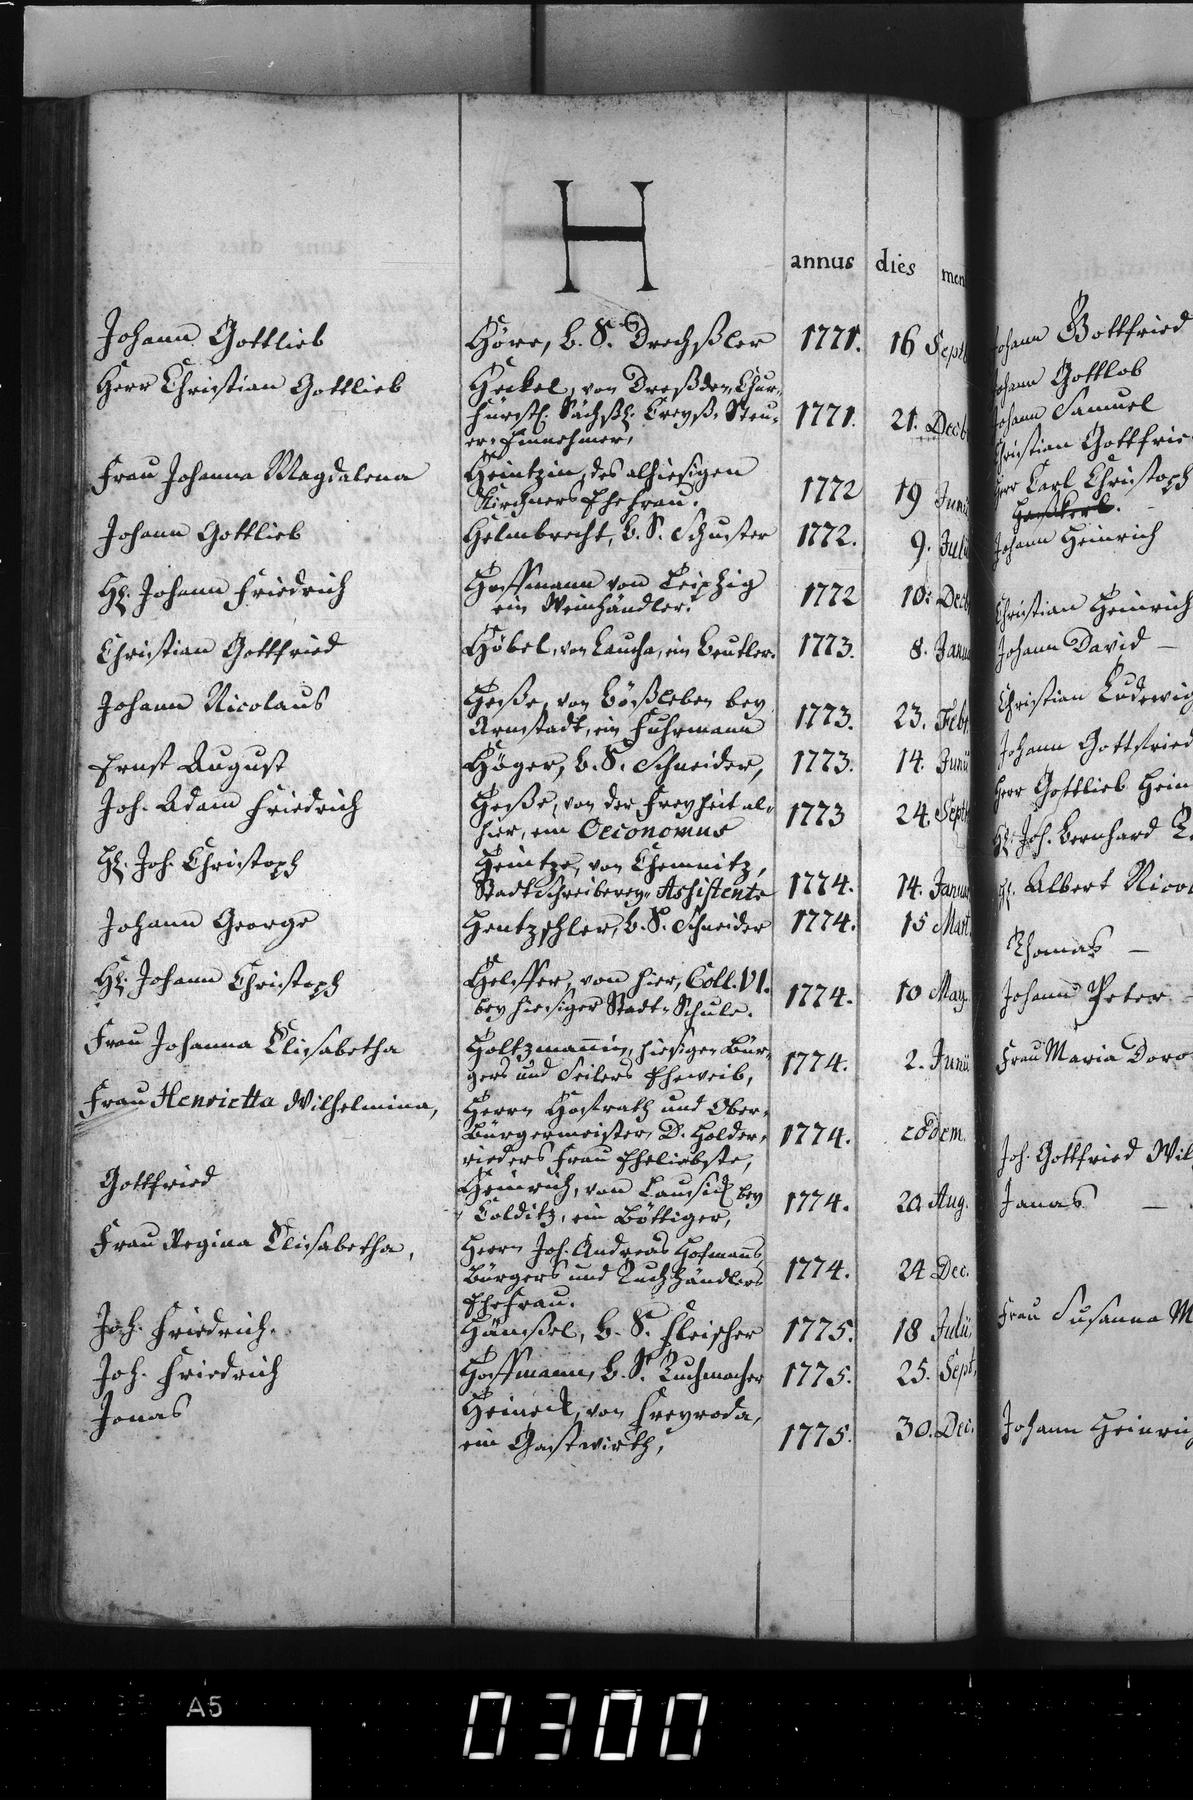 H
annus dies men
Johann Gottlieb Höre, b. S. Drechßler 1771. 16 Sept
Herr Christian Gottlieb Heckel, von Dreßden, Chur-
fürstl. Sächßl. Creyß-Steu-
er-Einnehmer, 1771. 21. Decb
Frau Johanna Magdalena Heintzin, des alhiesigen
Kirchners Ehefrau. 1772 19 Junii
Johann Gottlieb Helmbrecht, b. S. Schuster 1772. 9. Julii
H. Johann Friedrich Hoffmann von Leipzig
ein Weinhändler. 1772 10. Decb
Christian Gottfried Höbel, von Laucha, ein Beutler. 1773. 8. Janu
Johann Nicolaus Heße, von Bößleben bey
Arnstadt, ein Fuhrmann 1773. 23. Febr
Ernst August Höger, b. S. Schneider, 1773. 14. Junii
Joh. Adam Friedrich Heße, von der Freyheit al-
hier, ein Oeconomus 1773 24. Septb
H. Joh. Christoph Heintze, von Chemnitz,
Stadtschreiberey-Assistente 1774. 14. Janua
Johann George Hentzschler, b. S. Schneider 1774. 15 Mart.
H. Johann Christoph Helffer, von hier, Coll. VI.
bey hiesiger Stadt-Schule. 1774. 10 May.
Frau Johanna Elisabetha Holtzmannin, hiesigen Bür-
gers und Seilers Eheweib, 1774. 2. Junii
Frau Henrietta Wilhelmina, Herrn Hofrath und Ober-
Bürgermeister, D. Holder-
rieders Frau Eheliebste, 1774. eodem.
Gottfried Heinrich, von Lausick bey
Colditz, ein Böttiger, 1774. 20 Aug.
Frau Regina Elisabetha, Herrn Joh. Andreas Hofmanns,
Bürgers und Tuchhändlers 1774. 24 Dec.
Ehefrau.
Joh. Friedrich. Hänßel, b. S. Fleischer 1775. 18 Julii,
Joh. Friedrich Hoffmann, b. S. Tuchmacher 1775. 25. Sept.
Jonas Heineck, von Freyroda,
ein Gastwirth, 1775. 30. Dec.
Johann Gottfried
Johann Gottlob
Johann Samuel
Christian Gottfrie
Herr Carl Christoph
Johann Heinrich
Christian Heinrich
Johann David –
Christian Ludewig
Johann Gottfried
Herr Gottlieb Hein
H. Joh. Bernhard
H. Albert Nicol
Thomas –
Johann Peter –
Frau Maria Doro
Joh. Gottfried Wil
Jonas –
Frau Susanna M
Johann Heinrich
A5
0300